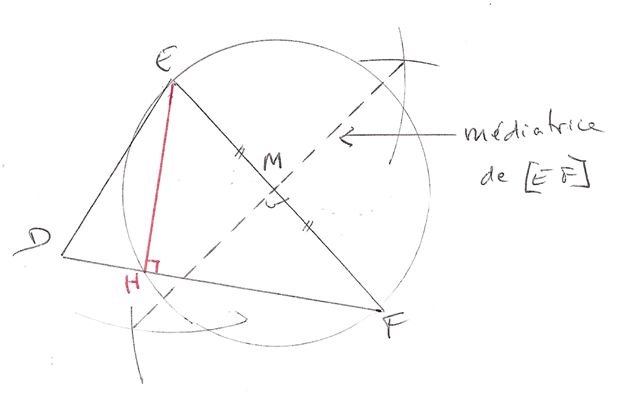 E
M
médiatrice
de [EF]
D
H
F